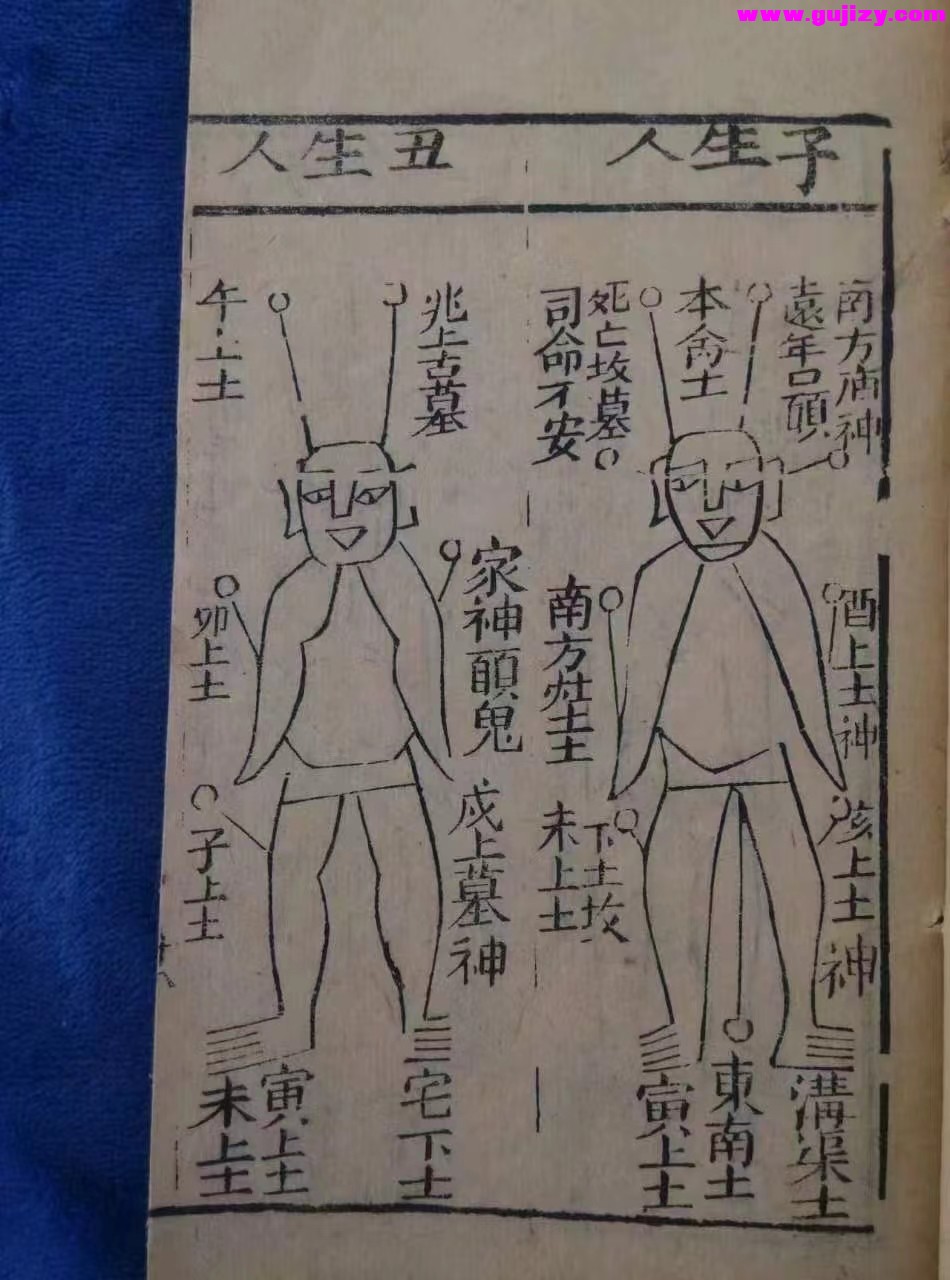 www.gujizy.com
子生人
南方庙神
遠年口願
本命土
死亡故墓
司命不安
酉上土神
南方灶土
亥上土神
下土故
未上土
溝渠土
東南土
寅上土
丑生人
兆上古墓
午上土
家神願鬼
卯上土
戌上墓神
子上土
宅下土
寅上土
未上土